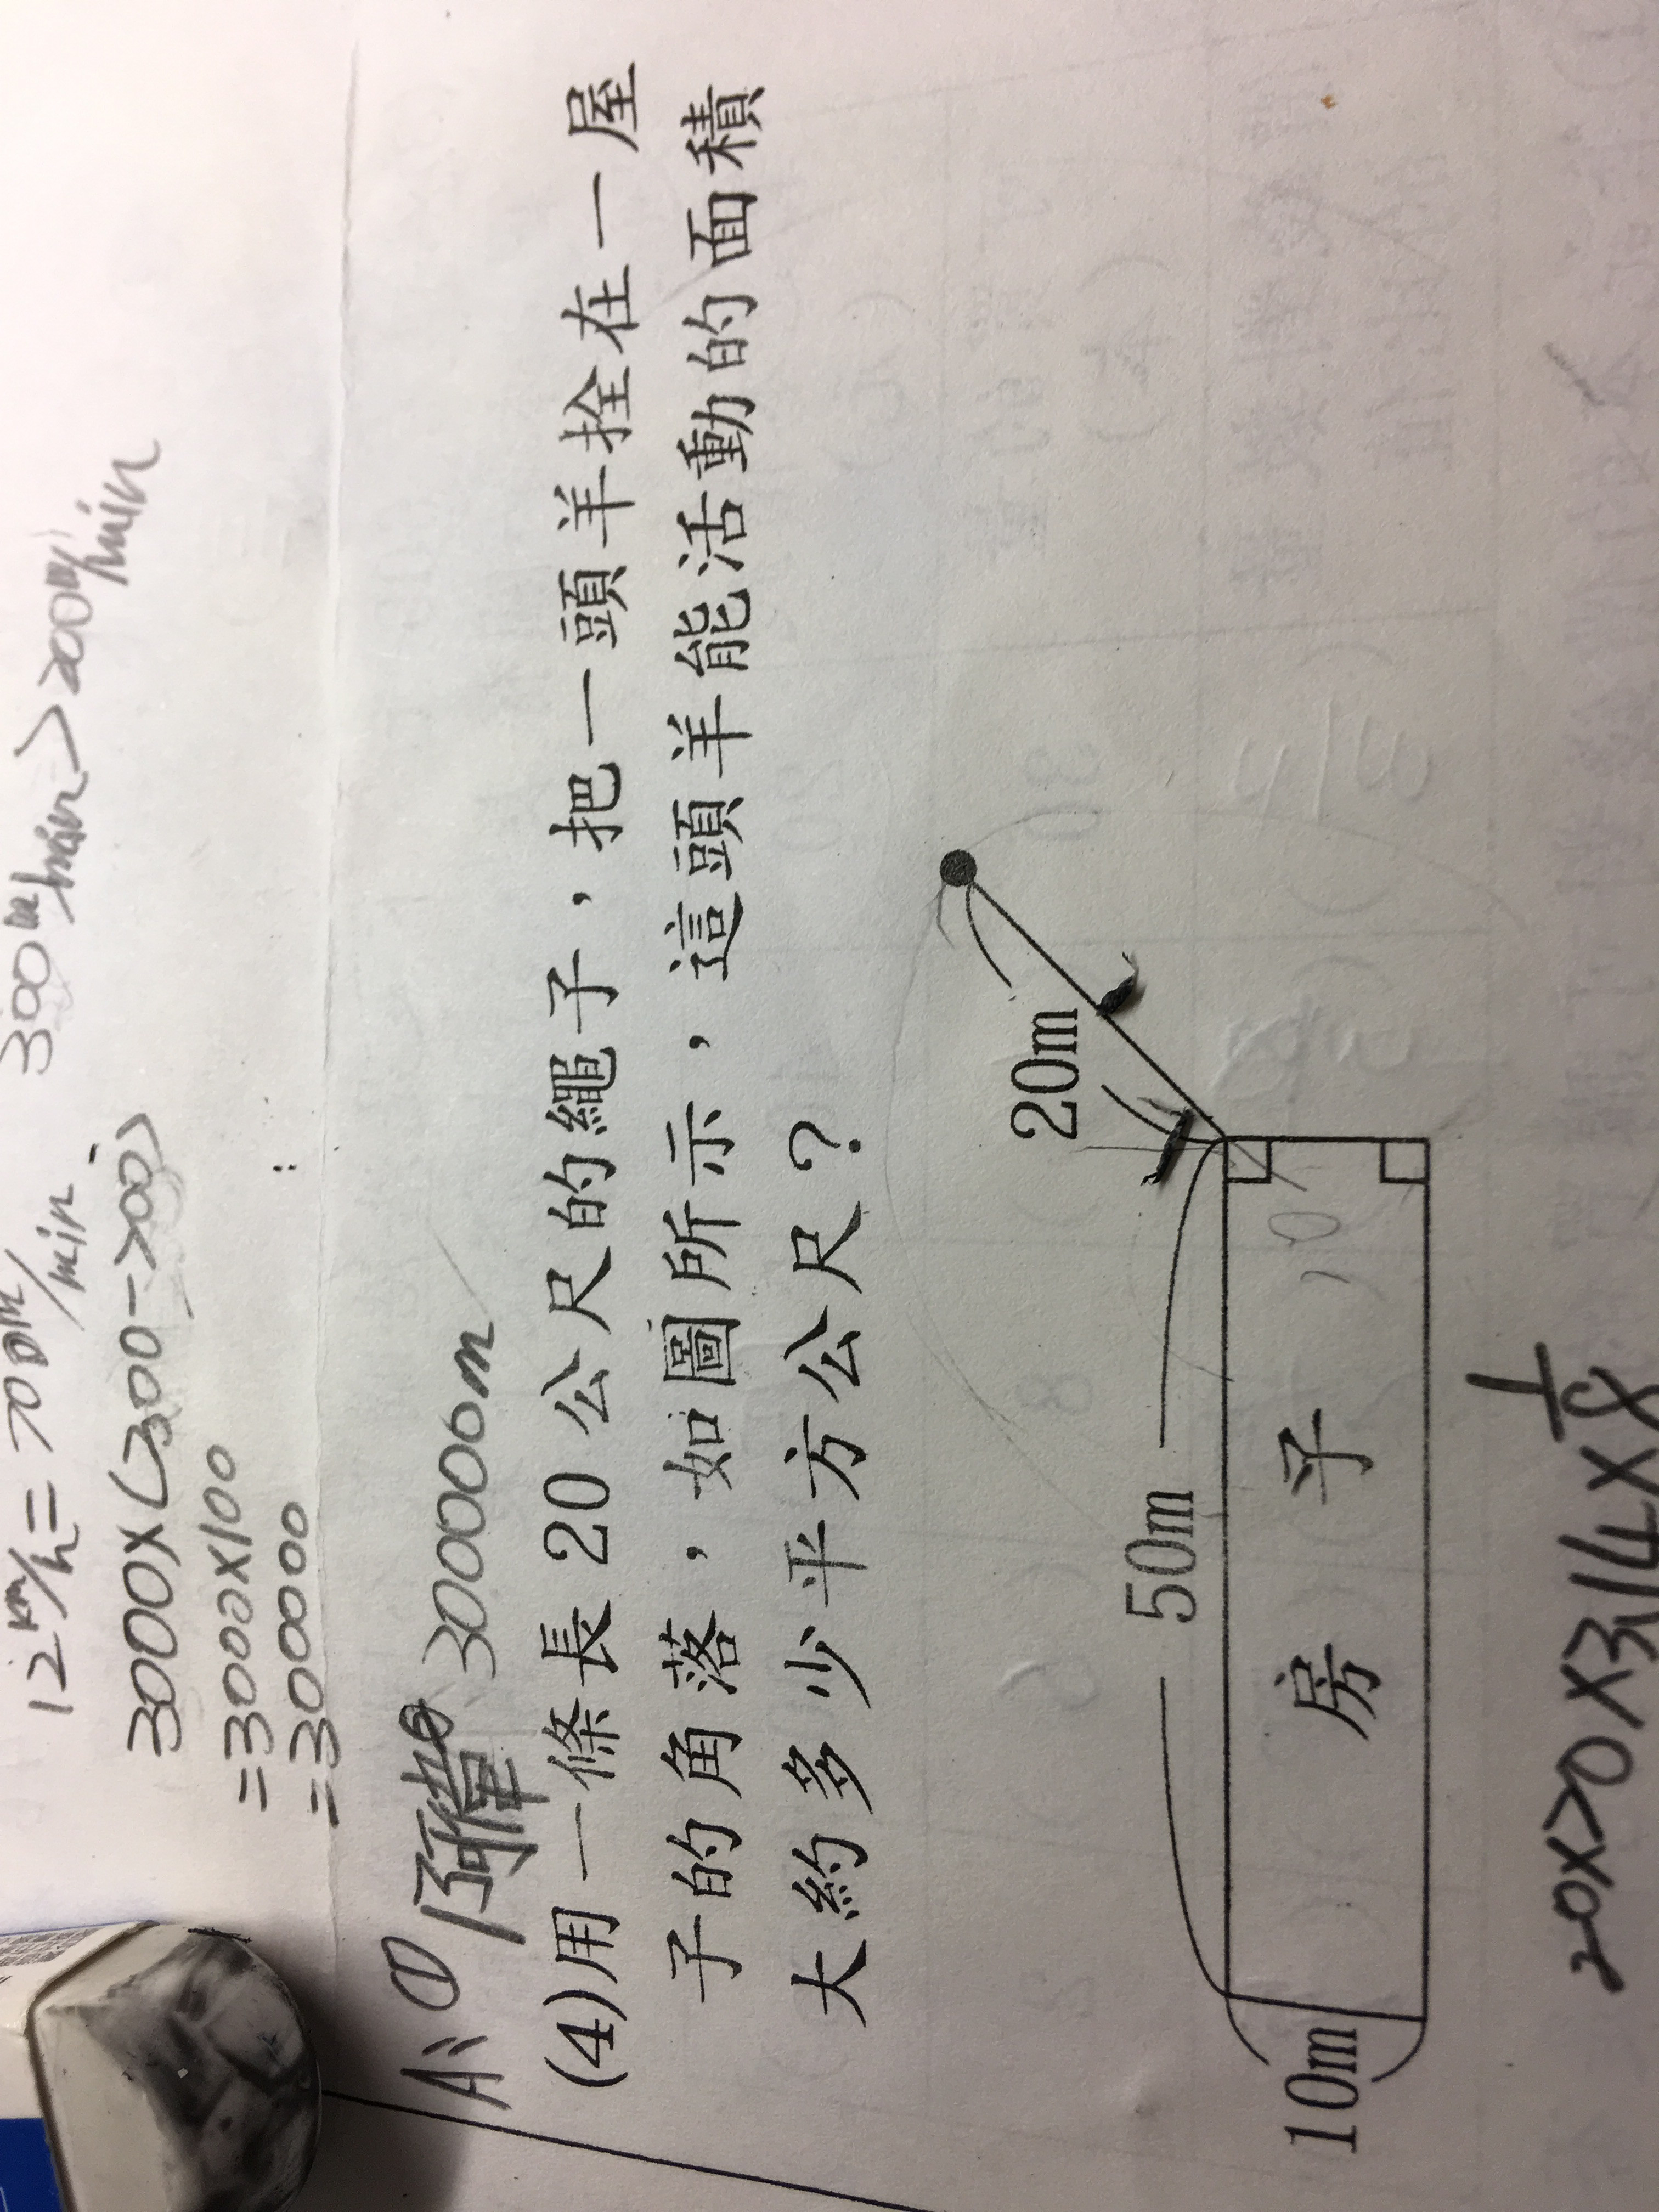 12km/h=200m/min 300m/min>200m/min
3000×(300-200)
=3000×100
=300000
A:① 阿偉② 300000m
(4)用一條長20公尺的繩子，把一頭羊拴在一屋
子的角落，如圖所示，這頭羊能活動的面積
大約多少平方公尺？
20m
50m
10m
房子
20×20×3.14×